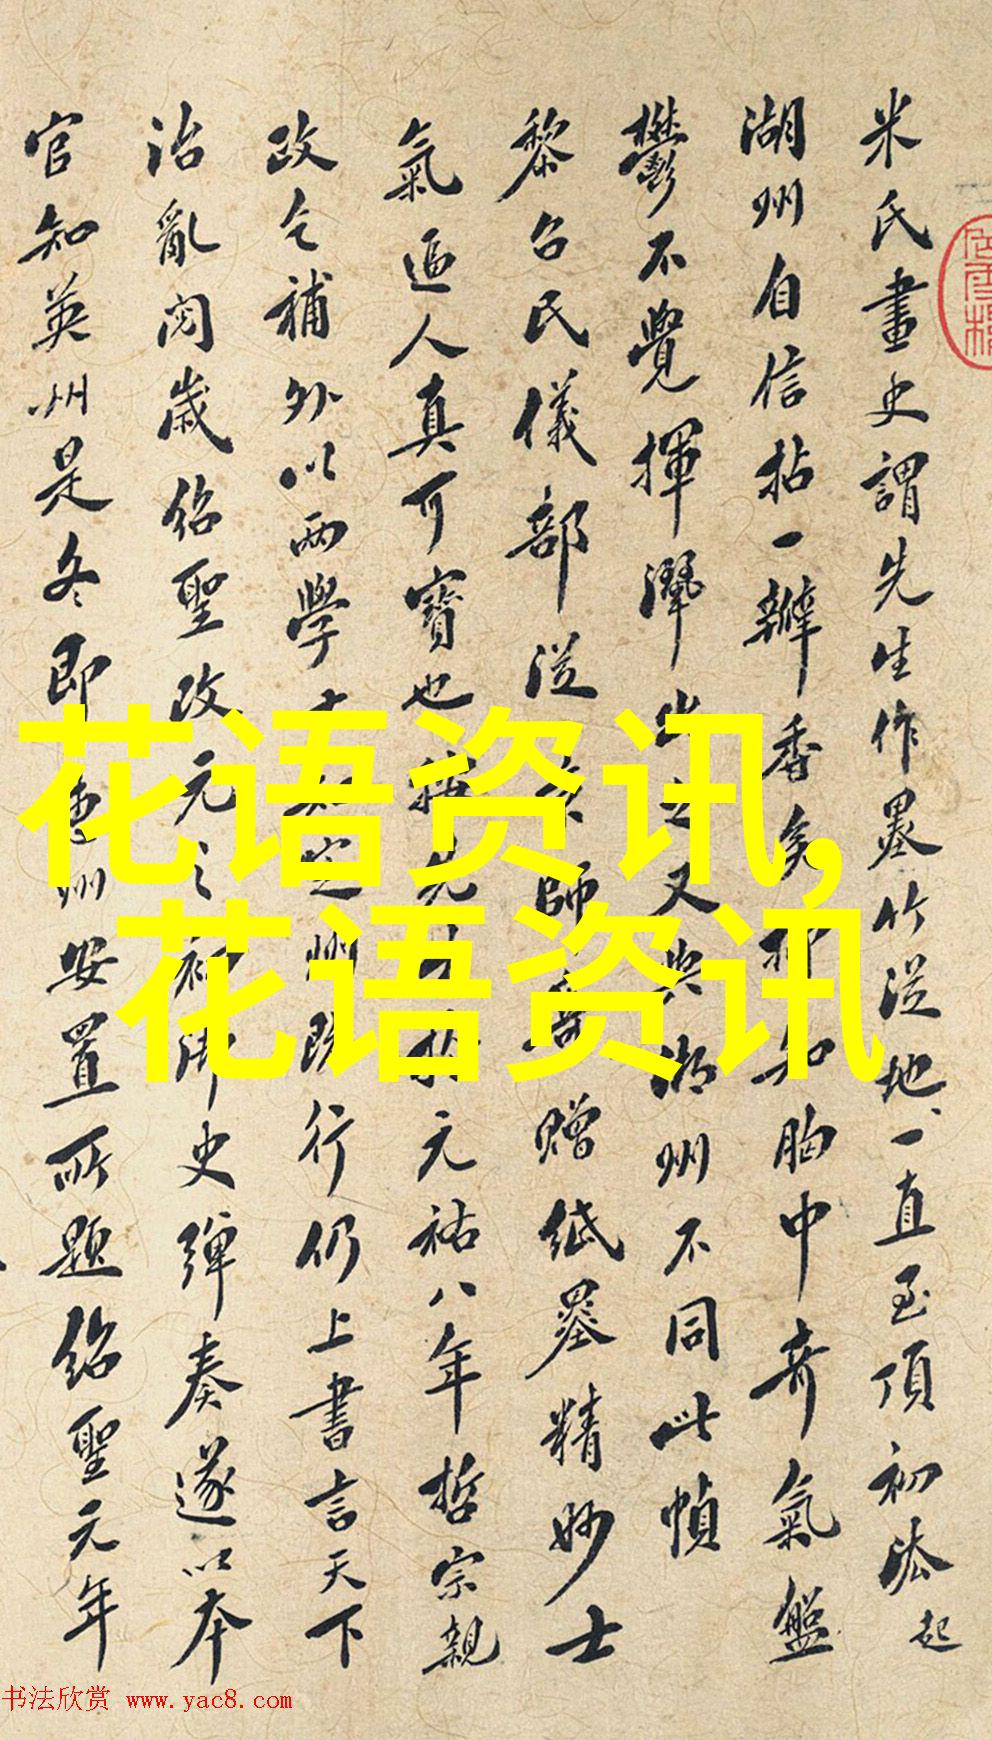 米氏畫史謂先生作墨竹從地一直至頂初法起
湖州自信拈一瓣香矣抑知胸中奇氣盤
鬱不覺揮灑出之又與湖州不同此幀
黎召民儀部從京師寄贈紙墨精妙士
氣逼人真可寶也
元祐八年哲宗親
政乞補外以兩學士知定州既行仍上書言天下
治亂閱歲紹聖改元之初御史彈奏遂以本
官知英州是冬即惠州安置所題紹聖元年
花语资讯,
花语资讯
书法欣赏 www.yac8.com